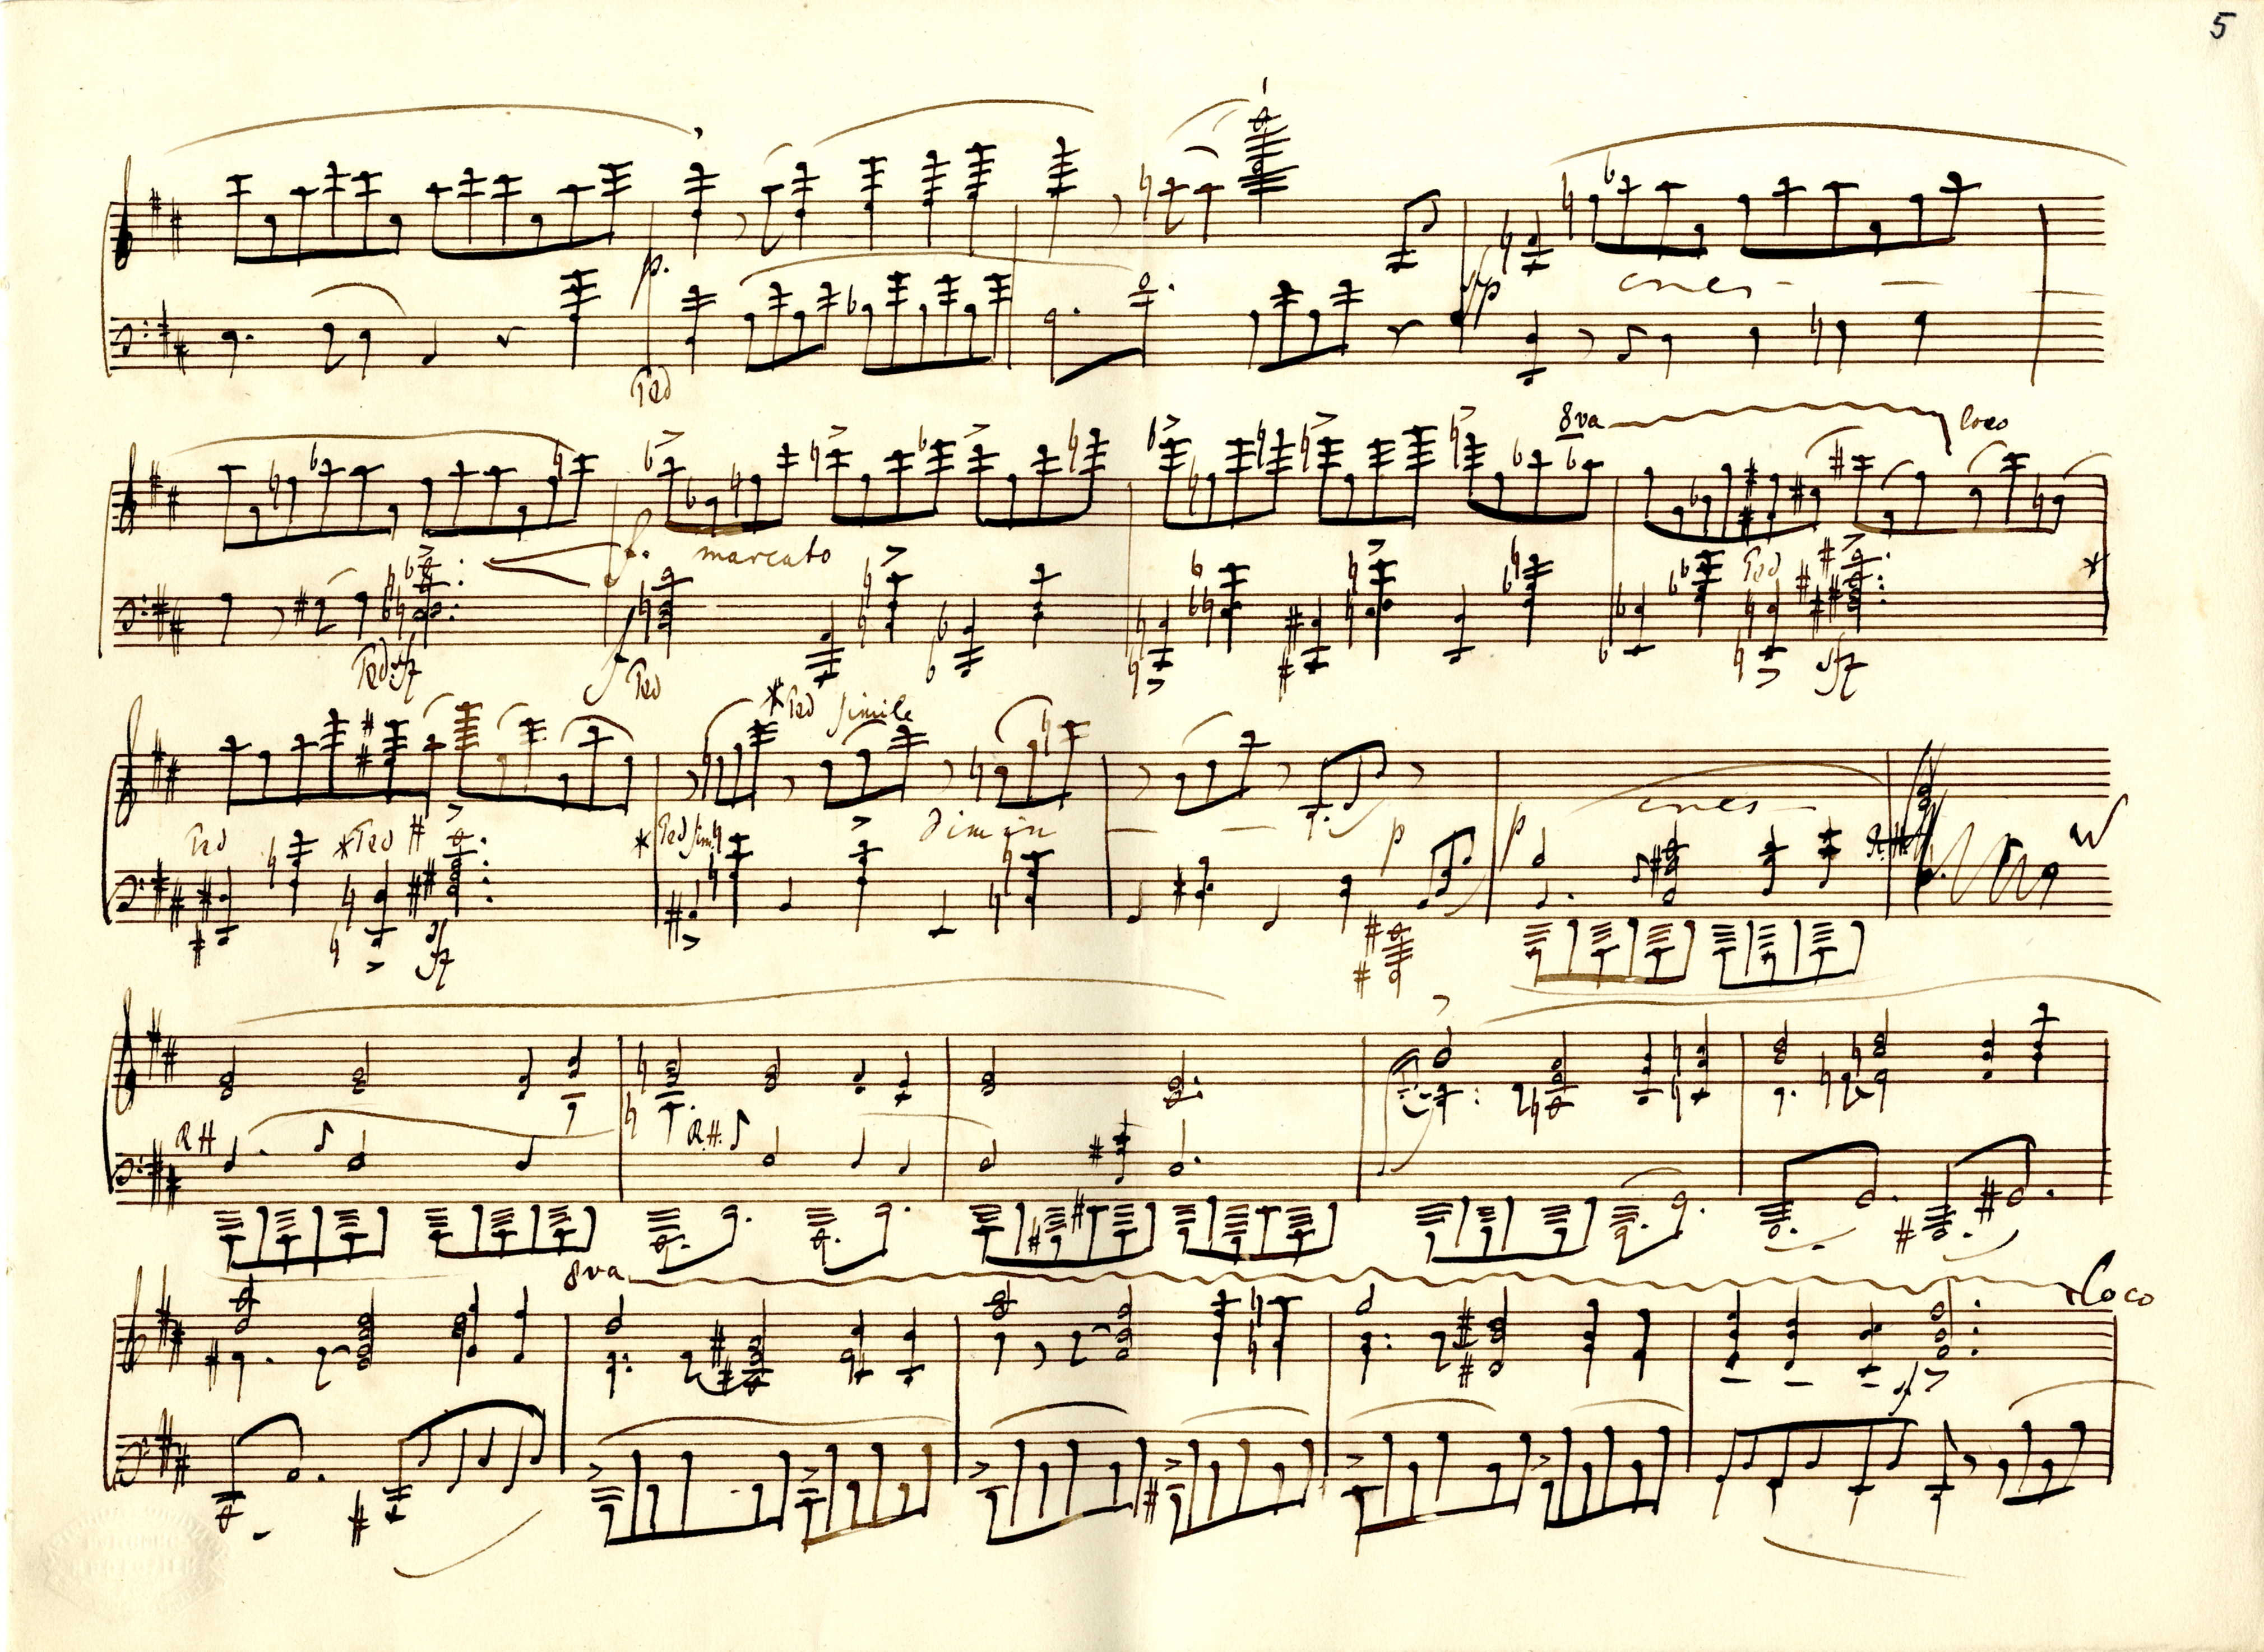 5
p.
Ped
fp cresc - -
8va loco
f. marcato
Ped
Ped sf
f Ped
sf
*
*Ped simile
Ped *Ped
* Ped sim
dimin - -
p p cresc -
sf
RH
R.H.
8va
loco
f